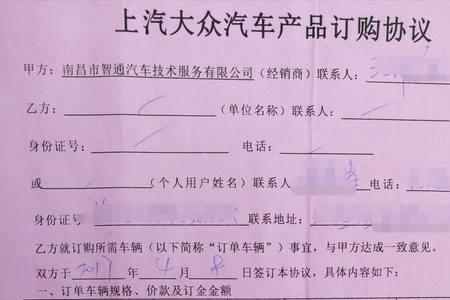 上汽大众汽车产品订购协议
甲方：南昌市智通汽车技术服务有限公司（经销商）联系人：
乙方：（单位名称）联系人：
身份证号：电话：
或（个人用户姓名）联系人电话：
身份证号联系地址：
乙方就订购所需车辆（以下简称“订单车辆”）事宜，与甲方达成一致意见。
双方于2017年4月8日签订本协议，具体内容如下：
一、订单车辆规格、价款及订金金额